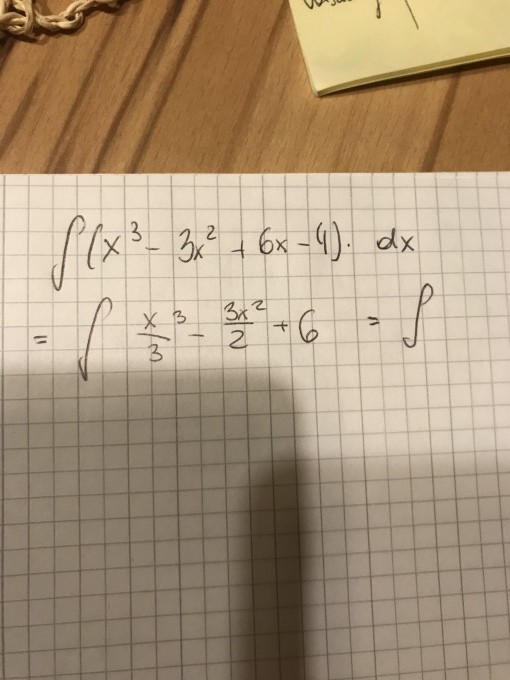 ∫(x³ - 3x² + 6x - 4). dx
= ∫ x³/3 - 3x²/2 + 6 = ∫